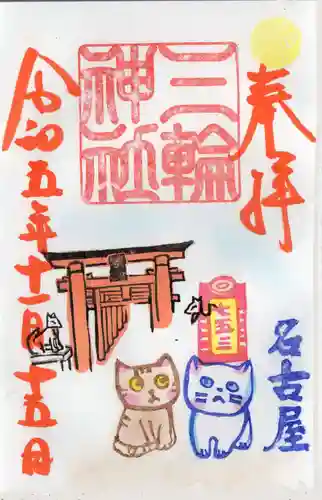 奉拝
三輪
神社
七五三
名古屋
令和五年十一月十五日